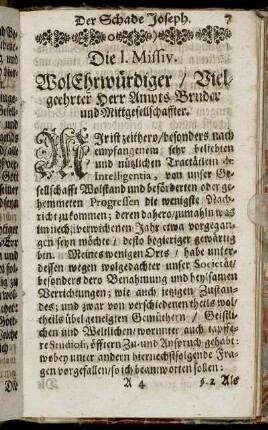 Der Schade Joseph. 7
Die I. Missiv.
WolEhrwürdiger / Viel-
geehrter Herr Ampts Bruder
und Mittgesellschaffter.
MIr ist zeithero / besonders nach
empfangenem / sehr beliebten
und nützlichen Tractätlein de
Intelligentia, von unser Ge-
sellschafft Wolstand und beförderten oder ge-
hemmeten Progressen die wenigste Nach-
richt zukommen; deren dahero / zumahln was
im nechstverwichenen Jahr etwa vorgegan-
gen seyn möchte / desto begieriger gewärtig
bin. Meines wenigen Orts / habe unter-
dessen wegen wolgedachter unser Societät /
besonders dero Benahmung und heylsamen
Verrichtungen; wie auch jetzigen Zustan-
des; und zwar von verschiedenen theils wol /
theils übel geneigten Gemüthern / Geistli-
chen und Weltlichen / worunter auch tapffe-
re Studiosi, öfftern Zu- und Anspruch gehabt:
wobey unter andern hiernechstfolgende Fra-
gen vorgefallen / so ich beantworten sollen:
A 4 §. 2 Als
Die